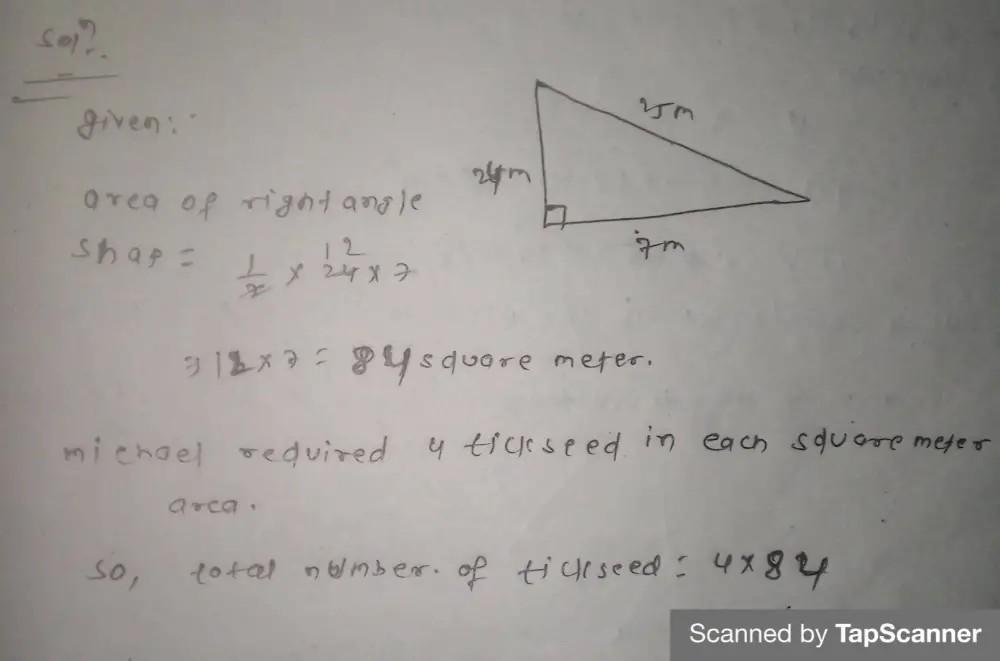 Sol?.
given:
25m
24m
area of right angle
shap = 1/2 × 24 × 7
12
7m
⇒ 12 × 7 = 84 square meter.
michael required 4 tickseed in each square meter
area.
so, total number. of tickseed = 4 × 84
Scanned by TapScanner